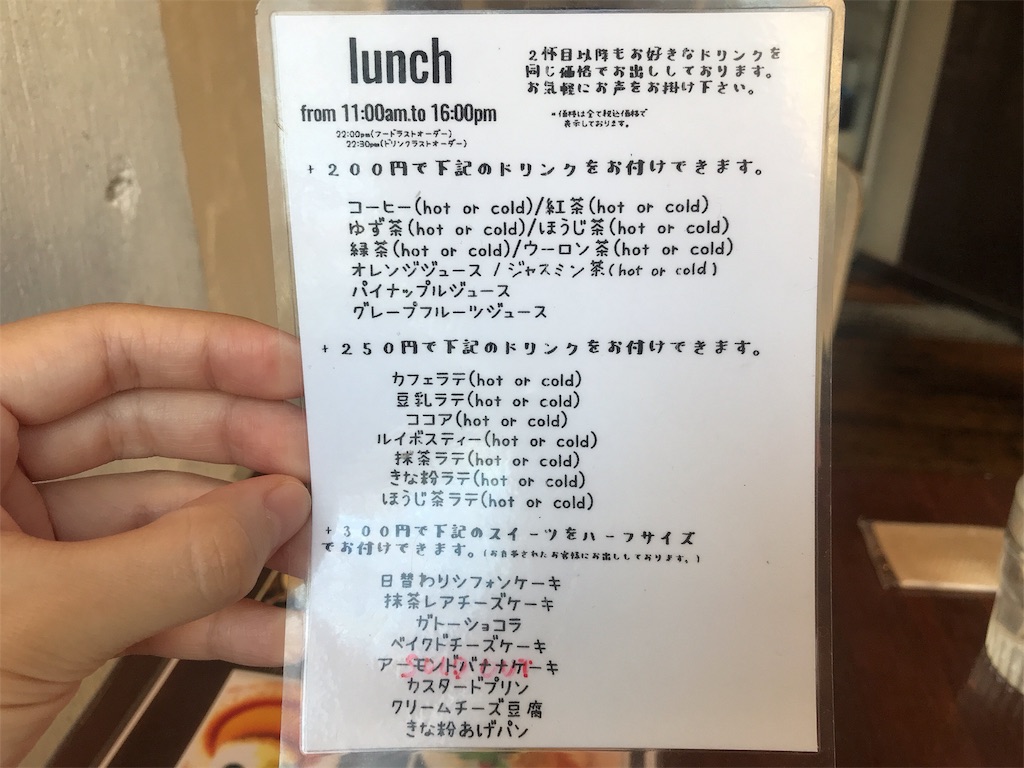 lunch
from 11:00am.to 16:00pm
22:00pm(フードラストオーダー)
22:30pm(ドリンクラストオーダー)
2杯目以降もお好きなドリンクを
同じ価格でお出ししております。
お気軽にお声をお掛け下さい。
*価格は全て税込価格で
表示しております。
+200円で下記のドリンクをお付けできます。
コーヒー(hot or cold)/紅茶(hot or cold)
ゆず茶(hot or cold)/ほうじ茶(hot or cold)
緑茶(hot or cold)/ウーロン茶(hot or cold)
オレンジジュース / ジャスミン茶(hot or cold)
パイナップルジュース
グレープフルーツジュース
+250円で下記のドリンクをお付けできます。
カフェラテ(hot or cold)
豆乳ラテ(hot or cold)
ココア(hot or cold)
ルイボスティー(hot or cold)
抹茶ラテ(hot or cold)
きな粉ラテ(hot or cold)
ほうじ茶ラテ(hot or cold)
+300円で下記のスイーツをハーフサイズ
でお付けできます。(お食事されたお客様にお出ししております。)
日替わりシフォンケーキ
抹茶レアチーズケーキ
ガトーショコラ
ベイクドチーズケーキ
アーモンドバナナケーキ
SOLD OUT
カスタードプリン
クリームチーズ豆腐
きな粉あげパン